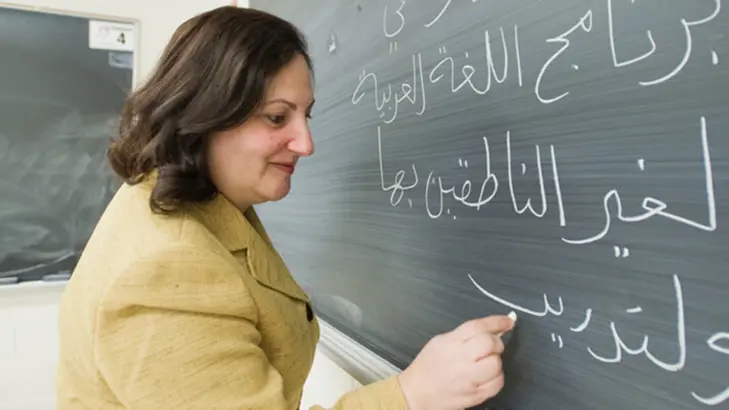 4
في
برنامج اللغة العربية
لغير الناطقين بها
ولتدريب